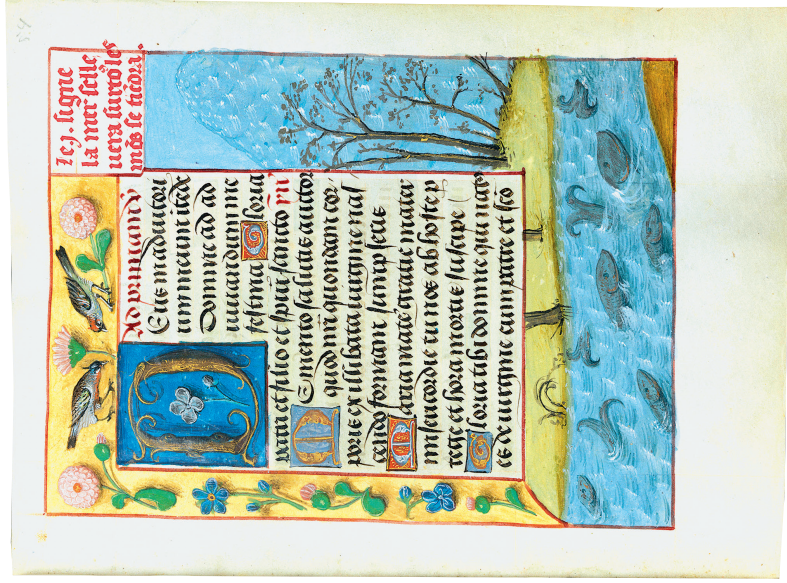 Le .j. signe
la mer selle
uera surto les
mõs se tiẽdra .
Ad primam. v̕
Deus in adiutori
um meum itẽde
Domine ad ad
iuuandum me
festina Gloria
patri et filio et spũi sancto ym
Memento salutis auctor
quod nr̃i quondam cor
poris ex illibata uirgine nas
cendo formam sumpseris
Maria mater gratie mater
misericordie tu nos ab hoste p
tege et hora mortis suscipe
Gloria tibi domine qui natus
es de uirgine cum patre et sc̃o